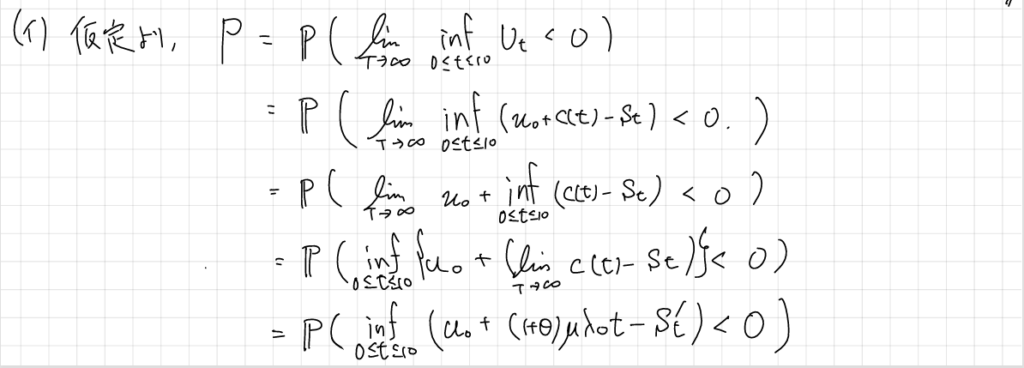 (イ) 仮定より, P = ℙ( lim_{T→∞} inf_{0≤t≤10} U_t < 0 )
= ℙ( lim_{T→∞} inf_{0≤t≤10} (u_0 + c(t) - S_t) < 0. )
= ℙ( lim_{T→∞} u_0 + inf_{0≤t≤10} (c(t) - S_t) < 0 )
= ℙ( inf_{0≤t≤10} {u_0 + (lim_{T→∞} c(t) - S_t)} < 0 )
= ℙ( inf_{0≤t≤10} (u_0 + (1+θ)μλ_0t - S_t') < 0 )